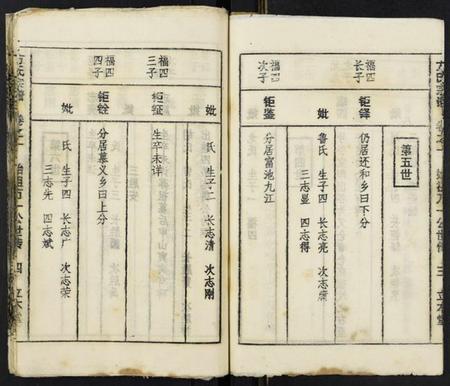 第五世
福四
长子
钜铎
仍居还和乡曰下分
妣
鲁氏 生子四 长志亮 次志
三志显 四志得
福四
次子
钜鉴
分居富池九江
妣
氏 生子二 长志清 次志刚
福四
三子
钜钲
生卒未详
福四
四子
钜铨
分居慕义乡曰上分
妣
氏 生子四 长志广 次志荣
三志先 四志斌
方氏宗谱 卷之一 始祖万一公世传 四 立本堂